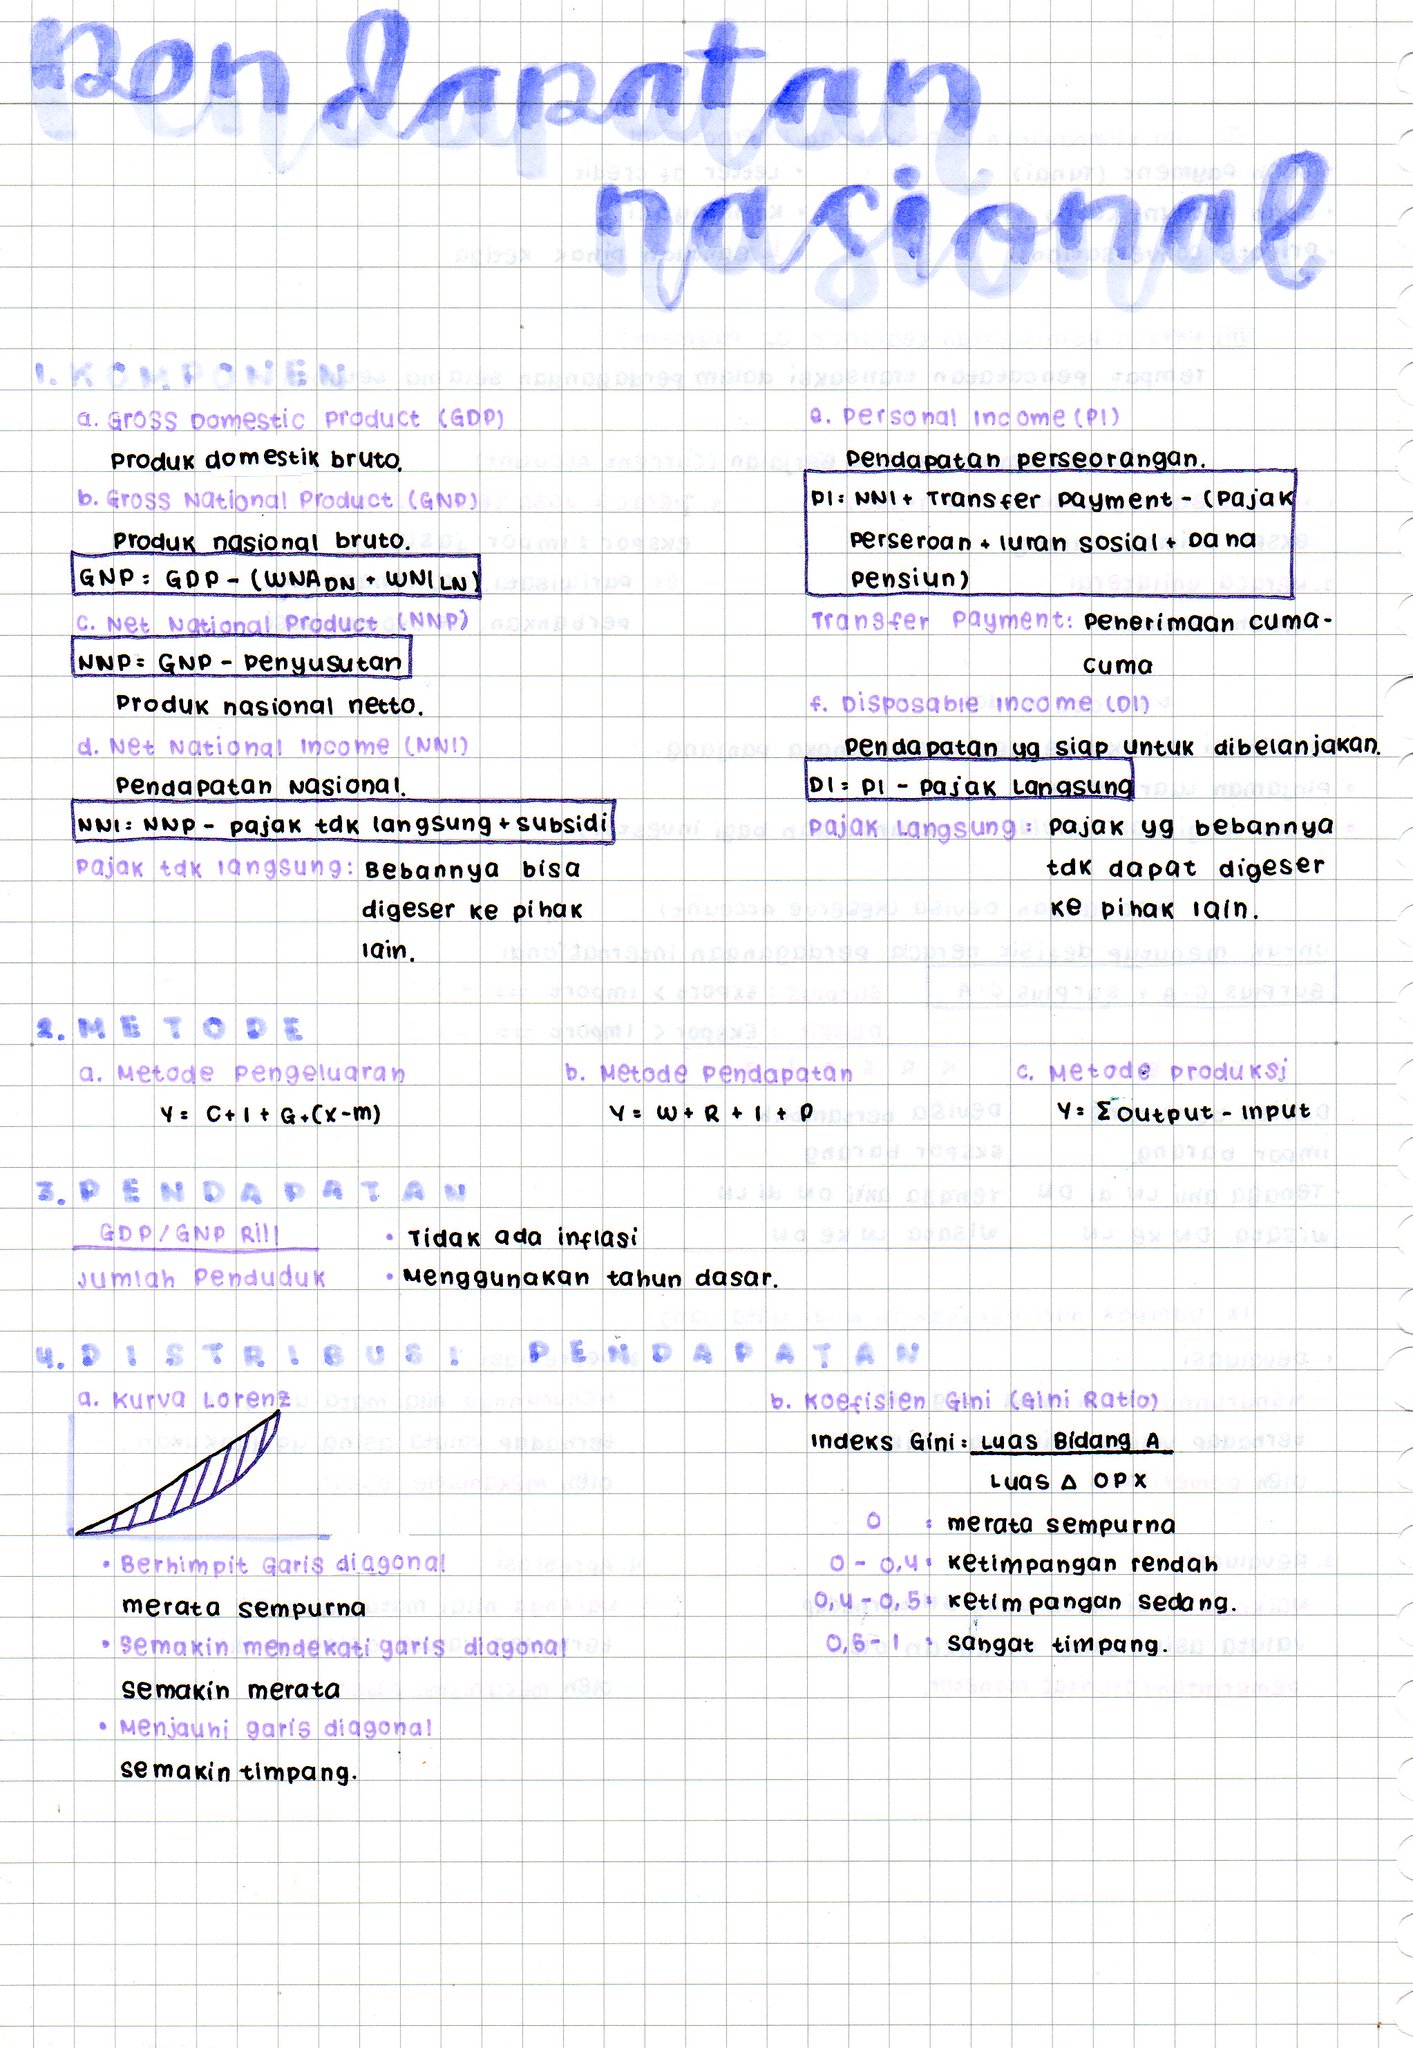 Pendapatan
nasional
1. KOMPONEN
a. Gross Domestic Product (GDP)
Produk domestik bruto.
b. Gross National Product (GNP)
Produk nasional bruto.
GNP = GDP - (WNA DN + WNI LN)
c. Net National Product (NNP)
NNP = GNP - Penyusutan
Produk nasional netto.
d. Net National Income (NNI)
Pendapatan Nasional.
NNI = NNP - pajak tdk langsung + subsidi
Pajak tdk langsung: Bebannya bisa
digeser ke pihak
lain.
e. Personal Income (PI)
Pendapatan perseorangan.
PI = NNI + Transfer Payment - (Pajak
Perseroan + Iuran sosial + Dana
Pensiun)
Transfer Payment: Penerimaan cuma-
cuma
f. Disposable Income (DI)
Pendapatan yg siap untuk dibelanjakan.
DI = PI - Pajak Langsung
Pajak Langsung: Pajak yg bebannya
tdk dapat digeser
ke pihak lain.
2. METODE
a. Metode Pengeluaran
Y = C + I + G + (X-M)
b. Metode Pendapatan
Y = W + R + I + P
c. Metode Produksi
Y = Σ Output - Input
3. PENDAPATAN
GDP/GNP Rill
Jumlah Penduduk
• Tidak ada inflasi
• Menggunakan tahun dasar.
4. DISTRIBUSI PENDAPATAN
a. Kurva Lorenz
• Berhimpit Garis diagonal
merata sempurna
• Semakin mendekati garis diagonal
semakin merata
• Menjauhi garis diagonal
semakin timpang.
b. Koefisien Gini (Gini Ratio)
Indeks Gini = Luas Bidang A
Luas Δ OPX
0 : merata sempurna
0 - 0,4 : ketimpangan rendah
0,4 - 0,5 : ketimpangan sedang.
0,5 - 1 : sangat timpang.